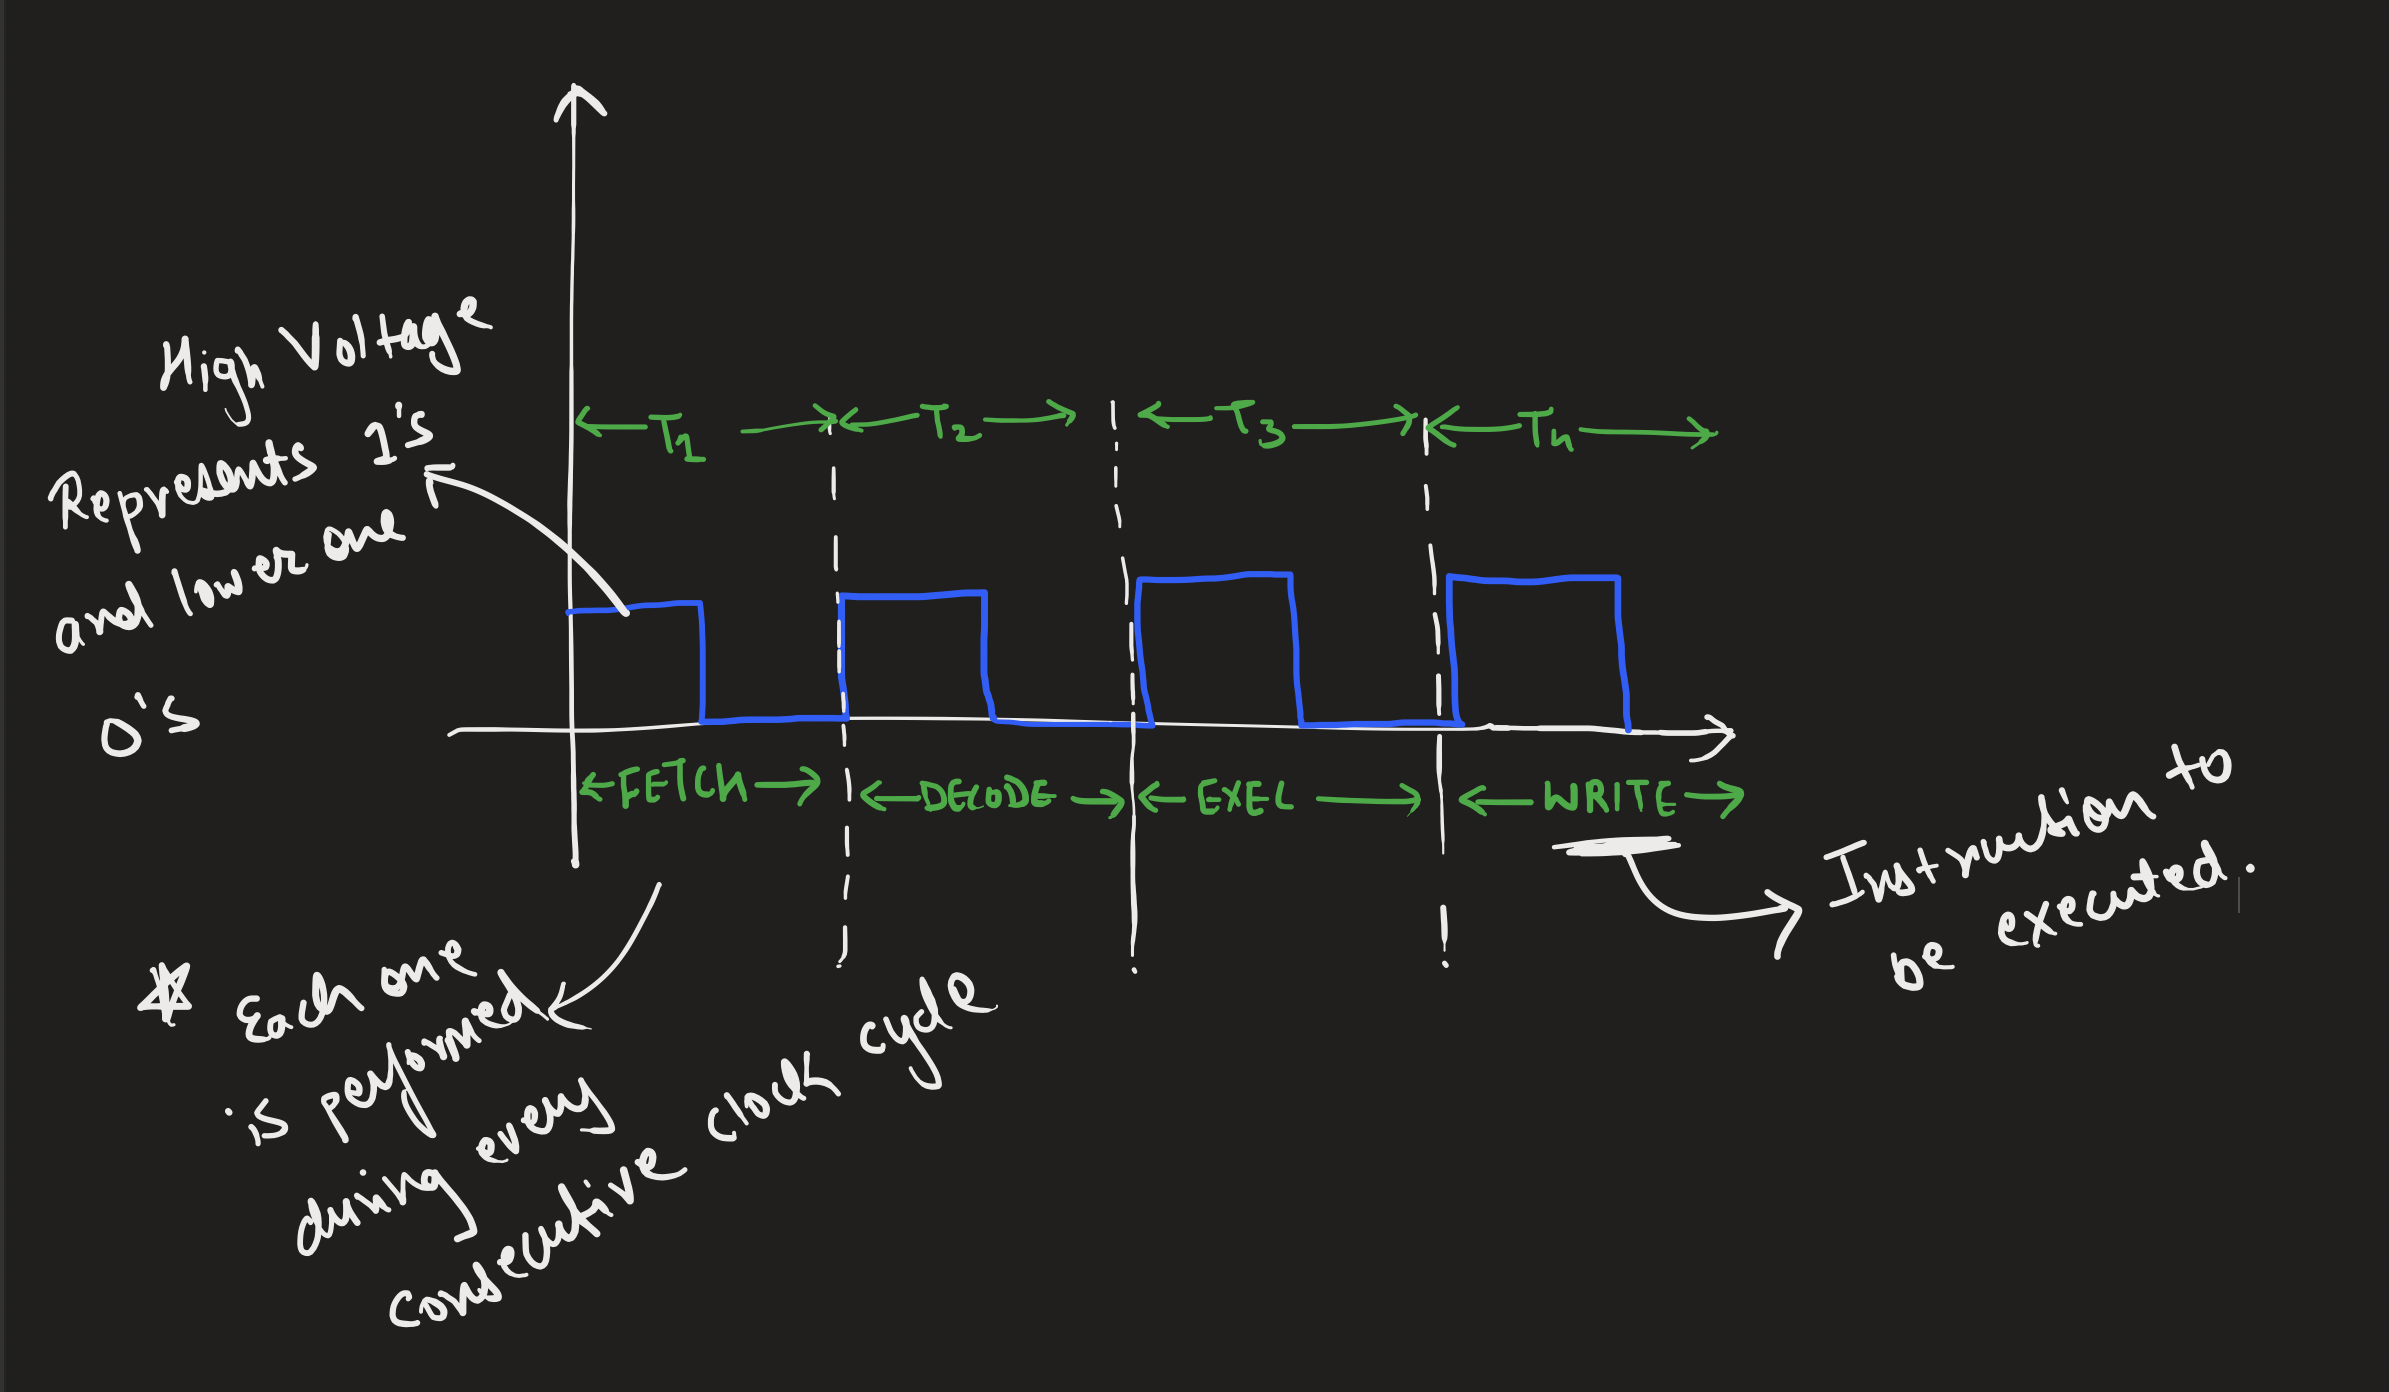 High Voltage
Represents 1's
and lower one
0's
T1 T2 T3 Tn
FETCH DECODE EXEL WRITE
Instruction to
be executed.
Each one
is performed
during every
consecutive clock cycle